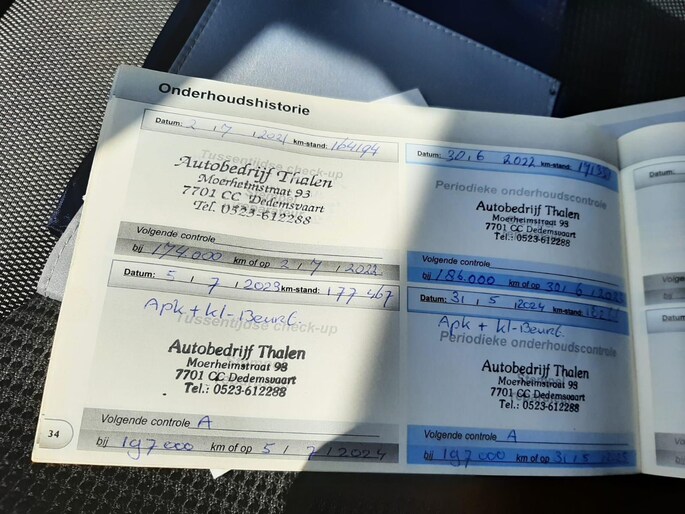 Onderhoudshistorie
Datum: 2 , 7 , 2021 km-stand: 164194
Tussentijdse check-up
Autobedrijf Thalen
Moerheimstraat 93
7701 CC Dedemsvaart
Tel. 0523-612288
Volgende controle
bij 174.000 km of op 2 , 7 , 2022
Datum: 30 , 6 2022 km-stand:
Periodieke onderhoudscontrole
Autobedrijf Thalen
Moerheimstraat 98
7701 CC Dedemsvaart
Tel.: 0523-612288
Volgende controle
bij 186.000 km of op 30 , 6
Datum: 5 , 7 , 2023 km-stand: 177467
Apk + kl-Beurt.
Tussentijdse check-up
Autobedrijf Thalen
Moerheimstraat 98
7701 CC Dedemsvaart
Tel.: 0523-612288
Volgende controle A
bij 197000 km of op 5 , 7 , 2024
Datum: 31 , 5 , 2024 km-stand:
Apk + kl-Beurt.
Periodieke onderhoudscontrole
Autobedrijf Thalen
Moerheimstraat 98
7701 CC Dedemsvaart
Tel.: 0523-612288
Volgende controle A
bij 197000 km of op 31 , 5
34
Datum:
Datum: